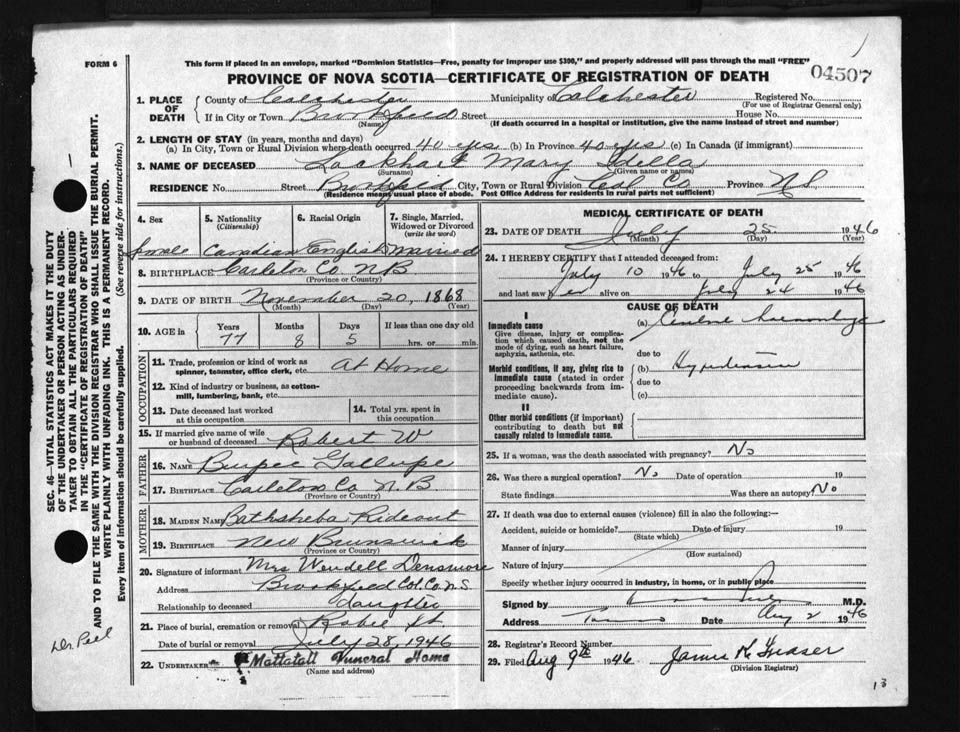 FORM 6
This form if placed in an envelope, marked "Dominion Statistics—Free, penalty for improper use $300," and properly addressed will pass through the mail "FREE"
PROVINCE OF NOVA SCOTIA—CERTIFICATE OF REGISTRATION OF DEATH
04507
1. PLACE OF DEATH
County of Colchester Municipality of Colchester Registered No.
(For use of Registrar General only)
If in City or Town Brookfield Street House No.
(Name) (If death occurred in a hospital or institution, give the name instead of street and number)
2. LENGTH OF STAY (in years, months and days)
(a) In City, Town or Rural Division where death occurred 40 yrs (b) In Province 40 yrs (c) In Canada (if immigrant)
3. NAME OF DECEASED Lockhart Mary Idella
(Surname) (Given name or names)
RESIDENCE No. Street Brookfield City, Town or Rural Division Col Co Province NS
(Residence means usual place of abode. Post Office Address for residents in rural parts not sufficient)
4. Sex
5. Nationality (Citizenship)
6. Racial Origin
7. Single, Married, Widowed or Divorced (write the word)
Female Canadian English Married
8. BIRTHPLACE Carleton Co N.B
(Province or Country)
9. DATE OF BIRTH November 20, 1868
(Month) (Day) (Year)
10. AGE in Years Months Days If less than one day old
77 8 5 hrs. or min.
OCCUPATION
11. Trade, profession or kind of work as spinner, teamster, office clerk, etc. At Home
12. Kind of industry or business, as cotton-mill, lumbering, bank, etc.
13. Date deceased last worked at this occupation
14. Total yrs. spent in this occupation
15. If married give name of wife or husband of deceased Robert W
FATHER
16. NAME Burpee Gallupe
17. BIRTHPLACE Carleton Co N.B.
(Province or Country)
MOTHER
18. MAIDEN NAME Bathsheba Rideout
19. BIRTHPLACE New Brunswick
(Province or Country)
20. Signature of informant Mrs Wendell Densmore
Address Brookfield Col. Co N.S
Relationship to deceased daughter
21. Place of burial, cremation or removal Robie St
Date of burial or removal July 28, 1946
22. UNDERTAKER Mattatall Funeral Home
(Name and address)
MEDICAL CERTIFICATE OF DEATH
23. DATE OF DEATH July 25 1946
(Month) (Day) (Year)
24. I HEREBY CERTIFY that I attended deceased from:
July 10 1946 to July 25 1946
and last saw her alive on July 24 1946
CAUSE OF DEATH
I
Immediate cause
Give disease, injury or complication which caused death, not the mode of dying, such as heart failure, asphyxia, asthenia, etc.
(a) Cerebral haemorrhage
due to
Morbid conditions, if any, giving rise to immediate cause (stated in order proceeding backwards from immediate cause).
(b) Hypertension
due to
(c)
II
Other morbid conditions (if important) contributing to death but not causally related to immediate cause.
25. If a woman, was the death associated with pregnancy? No
26. Was there a surgical operation? No Date of operation 19
State findings Was there an autopsy? No
27. If death was due to external causes (violence) fill in also the following:—
Accident, suicide or homicide? Date of injury 19
(State which)
Manner of injury
(How sustained)
Nature of injury
Specify whether injury occurred in industry, in home, or in public place
Signed by M.D.
Address Truro Date Aug 2 1946
28. Registrar's Record Number
29. Filed Aug 9th 1946 James K Fraser
(Division Registrar)
13
SEC. 46—VITAL STATISTICS ACT MAKES IT THE DUTY
OF THE UNDERTAKER OR PERSON ACTING AS UNDER-
TAKER TO OBTAIN ALL THE PARTICULARS REQUIRED
IN THE "CERTIFICATE OF REGISTRATION OF DEATH"
AND TO FILE THE SAME WITH THE DIVISION REGISTRAR WHO SHALL ISSUE THE BURIAL PERMIT.
WRITE PLAINLY WITH UNFADING INK. THIS IS A PERMANENT RECORD.
Every item of information should be carefully supplied. (See reverse side for instructions.)
Dr Peel